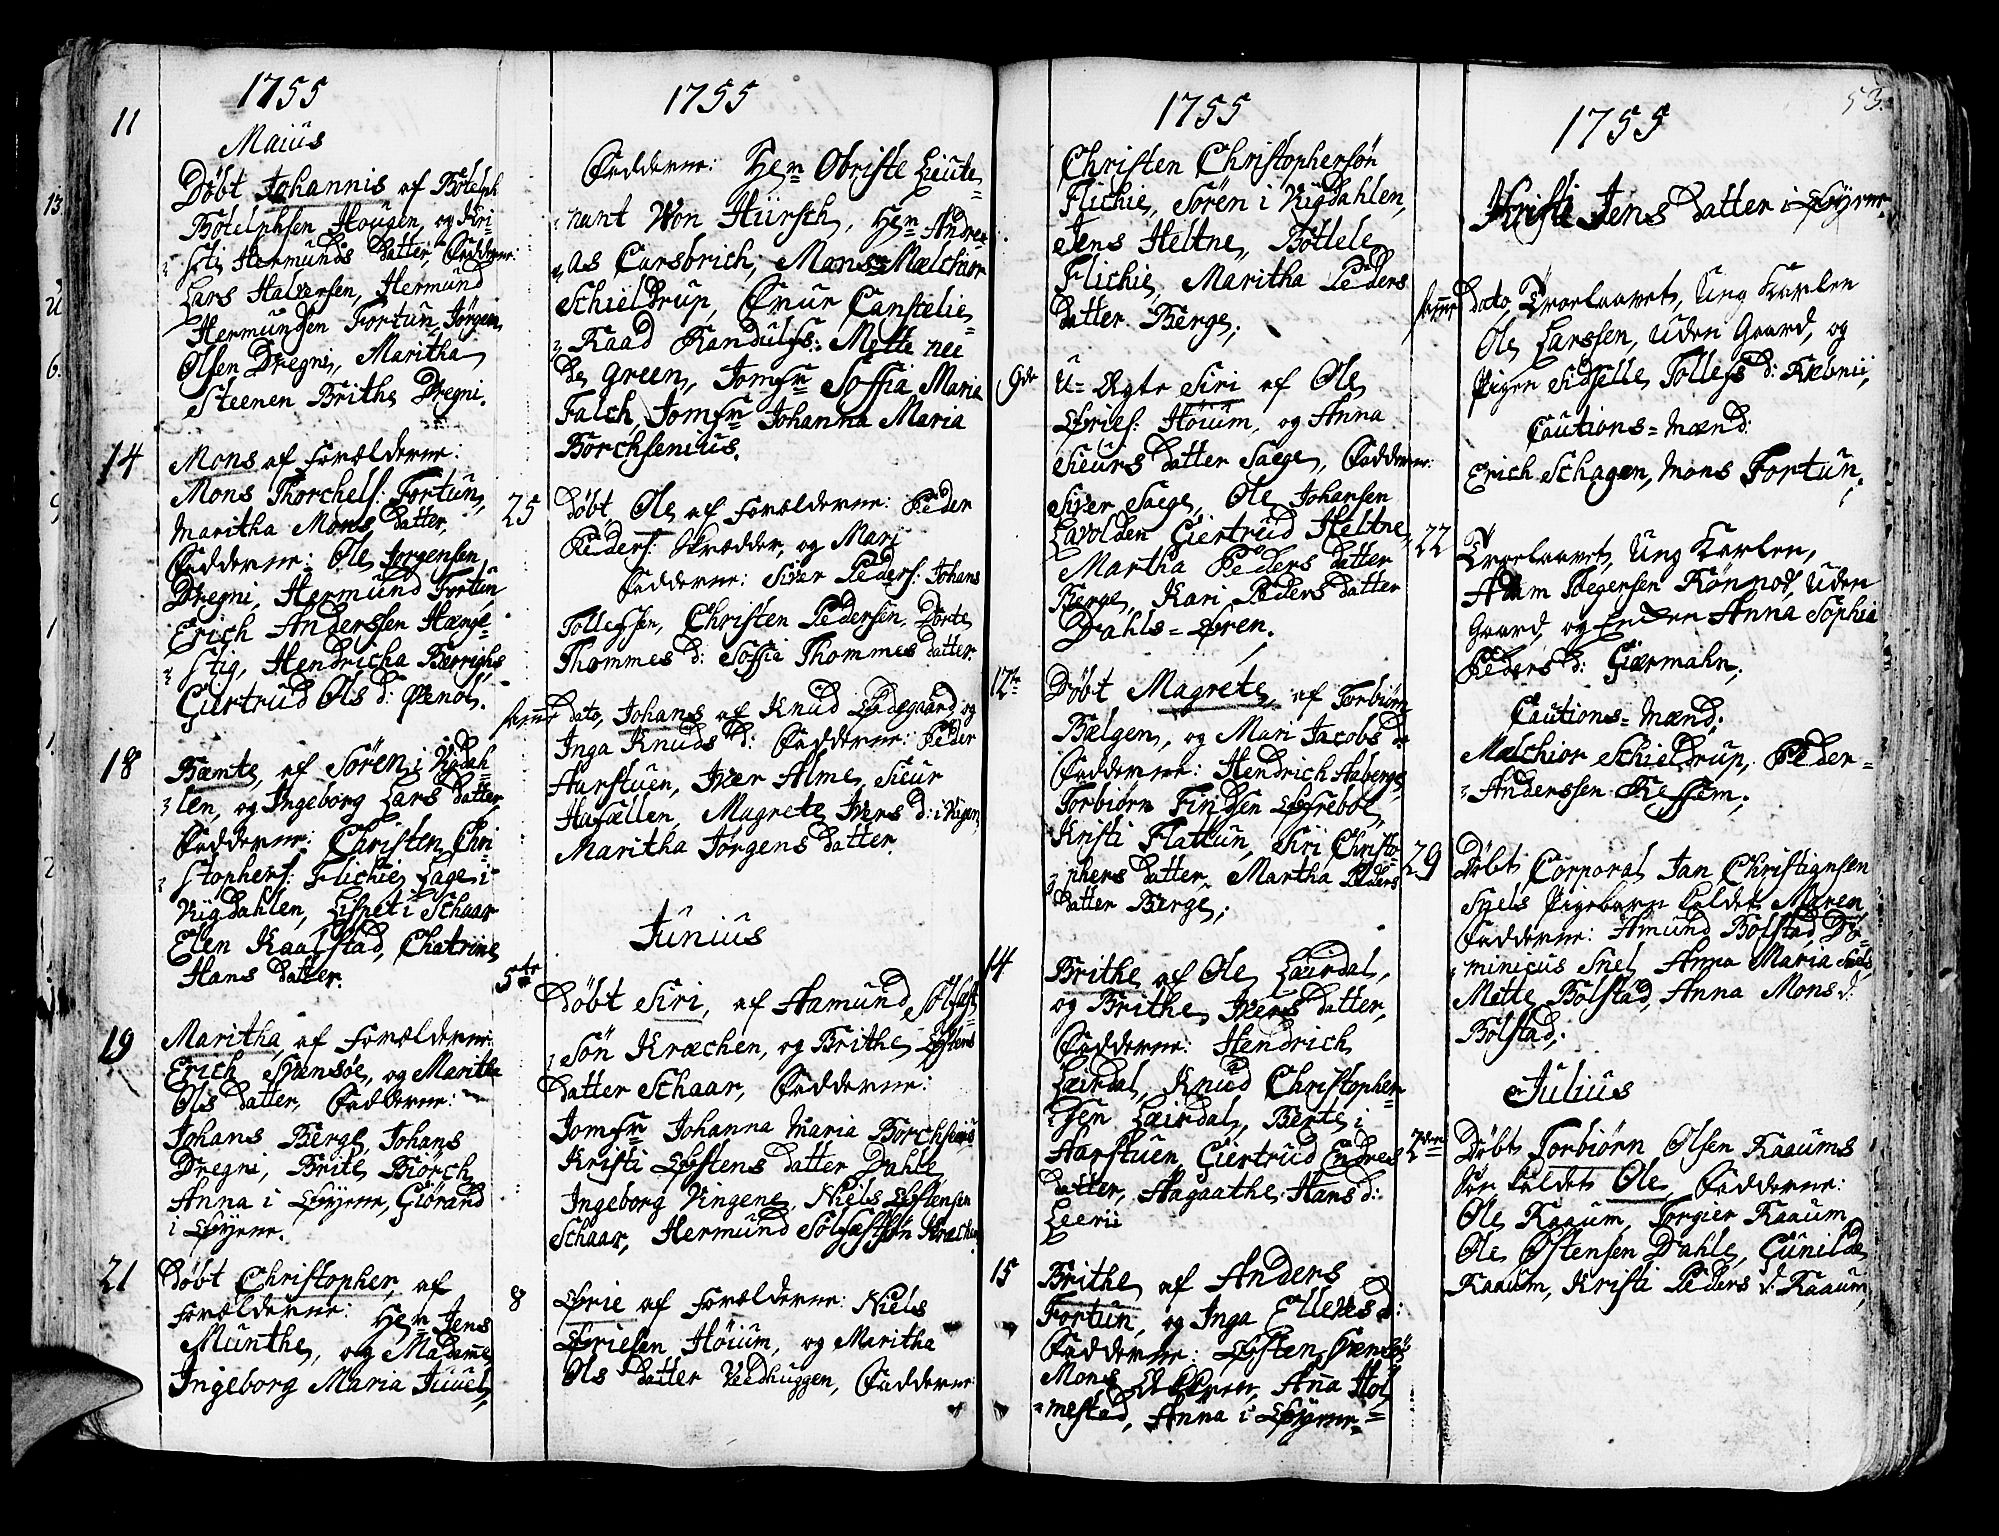 1755
Maius
11 Døbt Johannis af Botelph
Botelphsen Hougen, og Kri-
sti Hermunds datter, Fadderne:
Lars Halversen, Hermund
Hermundsen Fortun, Jørgen
Olsen Dregni, Maritha
Steenen Brithe Dregni.
14 Mons af Forælderne:
Mons Thorchels: Fortun,
Maritha Mons datter,
Fadderne: Ole Jørgensen
Dregni, Hermund Fortun
Erich Anderssen Hænge-
stig, Hendricha
Giertrud Ols d:
18 Bænte, af Søren i Vigdah-
len, og Ingeborg Lars datter,
Fadderne: Christen Chri-
stophers: Flichie Lage i
Vigdahlen, Lispet i Schaar
Elen Kaalstad, Chatrine
Hans datter.
19 Maritha, af Forælderne:
Erich Svensøe, og Maritha
Ols datter, Fadderne:
Johans Berge, Johans
Dregni, Brite Biørch
Anna i Øyene, Giørand
i Øyene.
21 Døbt Christopher, af
Forælderne: Her Jens
Munthe, og Madame
Ingeborg Maria Juuel,
1755
Fadderne: Her Obriste Lieute-
nant Von Hürsch, Her Andre-
as Carsbrich, Mans Mælchior
Schieldrup, Fruer Cantselie-
Raad Randulfs: Mette nee
de Green, Jomfr Soffia Maria
Falch, Jomfr Johanna Maria
Borchsenius.
25 Døbt Ole af Forælderne: Peder
Peders: Skrædder, og Mari
Fadderne: Siver Peders: Johans
Tollefsen, Christen Pedersen, Dorte
Thommes d: Soffia Thommes datter.
samme dato, Johans af Knud Ødegaard og
Inga Knuds d: Fadderne: Peder
Harstuen, Iver Alme, Sieur
Hafællen, Magrete Ivers d: i Vigen,
Maritha Jørgens datter.
Junius
5te Døbt Siri, af Aamund Solfast-
søn Kræchen, og Brithe Østens
datter Schaar, Fadderne:
Jomfr Johanna Maria Borchsenius
Kristi Østens datter Dahle
Ingeborg Vingene, Niels Østensen
Schaar, Hermund Solfastsøn Kræchen
8 Ørie af Forælderne: Niels
Øriesen Høium, og Maritha
Ols datter Vedhuggen, Fadderne
1755
Christen Christophersøn
Flichie, Søren i Vigdahlen,
Jens Heltne, Bottele
Flichie, Maritha Peders
datter Berge,
9de U-Ægte Siri af Ole
Øries: Høium, og Anna
Sieurs datter Saege, Fadderne:
Siver Saege, Ole Johansen
Lavolden Giertrud Heltne,
Martha Peders datter
Berge, Kari Peders datter
Dahls-Øren.
12te Døbt Magrete, af Torbiørn
Bælgen, og Mari Jacobs d:
Fadderne: Hendrich Aaberge,
Torbiørn Findsen Øfrebøe,
Kristi Flattun, Siri Christo-
phers datter, Martha Peders
datter Berge,
14 Brithe af Ole Leirdal,
og Brithe Ivers datter,
Fadderne: Hendrich
Leirdal, Knud Christopher-
sen Leirdal, Bente i
Harstuen, Giertrud Endres
datter, Aagaathe Hans d:
Leerii
15 Brithe af Anders
Fortun, og Inga Ellevs d:
Fadderne: Østen Svensøe
Mons Anna Hol-
mestad, Anna i Øyene
53.
1755
Kristi Jens datter i Øyene
samme dato, Troelaavet, Ung Karlen
Ole Larssen, Uden Gaard, og
Pigen Sidselle Tollefs d: Ræbnii,
Cautions-Mænd:
Erich Schagen, Mons Fortun,
22 Troelaavet, Ung Karlen,
Adam Bøegersen Rønnod, Uden
Gaard, og Encken Anna Sophia
Peders d: Giærmahn,
Cautions-Mænd:
Mælchior Schieldrup, Peder-
Anderssen Kessem,
29 Døbt Corporal Jan Christiansen
Snels Pigebarn kaldet Maren
Fadderne: Amund Bolstad, Do-
minicus Snel Anna Maria Snels
Mette Bolstad, Anna Mons d:
Bolstad,
Julius
2den Døbt Torbiørn Olsen Kaaums
Søn kaldet Ole, Fadderne:
Ole Kaaum, Torgier Kaaum
Ole Østensen Dahle, Gunilde
Kaaum, Kristi Peders d: Kaaum,